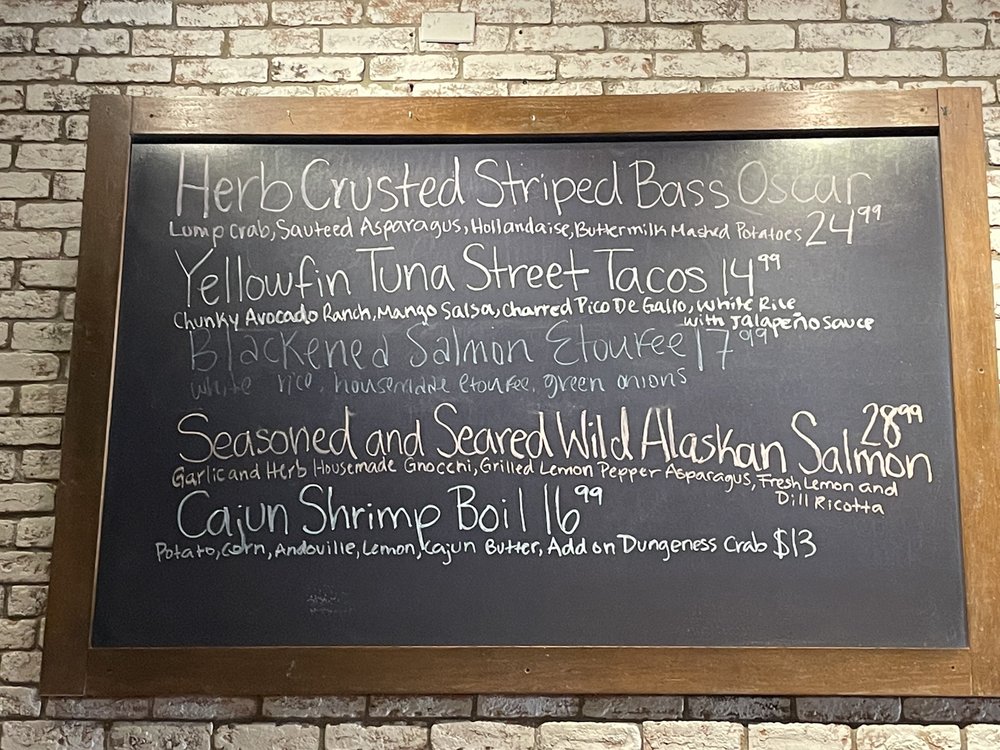 Herb Crusted Striped Bass Oscar
Lump Crab, Sauteed Asparagus, Hollandaise, Buttermilk Mashed Potatoes 24⁹⁹
Yellowfin Tuna Street Tacos 14⁹⁹
Chunky Avocado Ranch, Mango Salsa, Charred Pico De Gallo, White Rice
with Jalapeño Sauce
Blackened Salmon Etoufee 17⁹⁹
white rice, housemade etoufee, green onions
28⁹⁹
Seasoned and Seared Wild Alaskan Salmon
Garlic and Herb Housemade Gnocchi, Grilled Lemon Pepper Asparagus, Fresh Lemon and
Dill Ricotta
Cajun Shrimp Boil 16⁹⁹
Potato, Corn, Andouille, Lemon, Cajun Butter, Add on Dungeness Crab $13